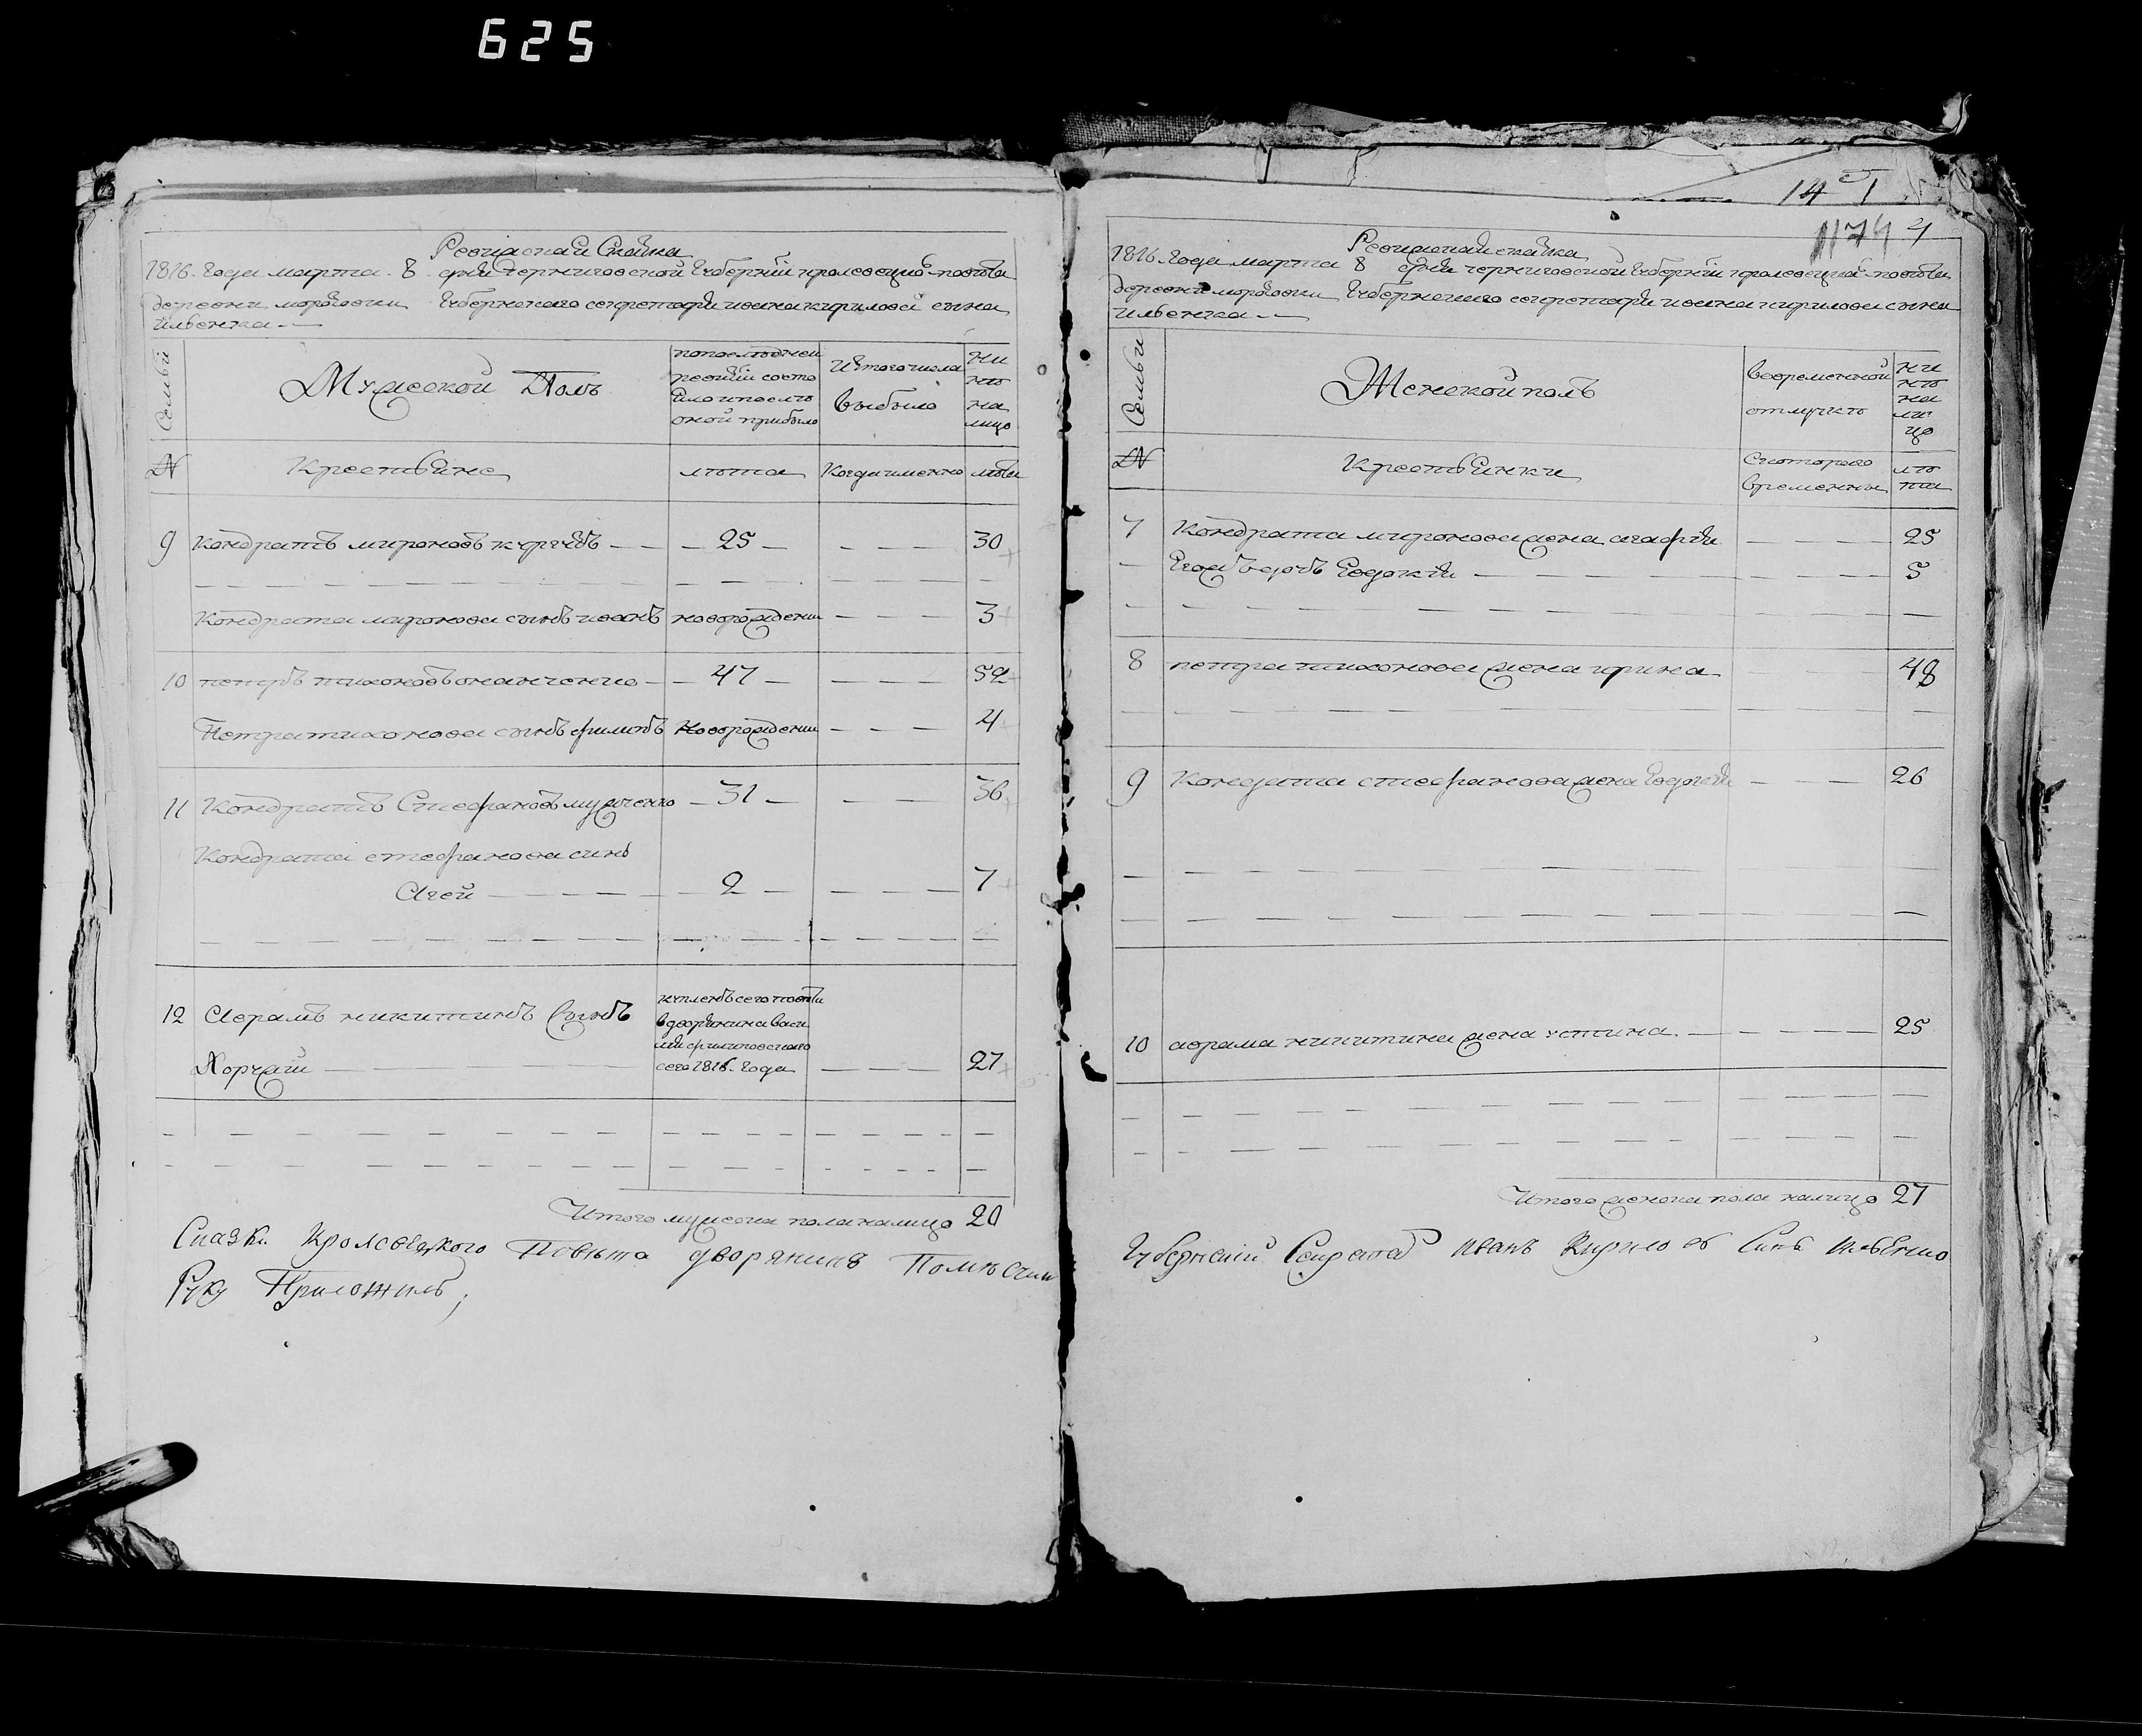 625
Ревизская Сказка
1816. Года марта. 8. дня черниговской Губернїи кролевецко: повета
деревни морозовки Губернского секретаря ивана кирилова сына
Ильенка
Семьи
Мужеской Полъ
по последней
ревизїи состо
яло и после
оной прибыло
Из того числа
выбыло
Ны
не
на
лицо
№
Крестьяне
лета
Когда именно
лета
9 Кондратъ мироновъ 25 30
Кондрата миронова сынъ иванъ новорожденн 3
10 петръ тихоновъ 47 52
Петра тихонова сынъ филипъ Новорожденн 4
11 Кондратъ Стефановъ 31 36
Кондрата стефанова синъ
Агей 2 7
12 Аврамъ никитинъ сынъ
Хоржай
купленъ сего повета
в дворянина васи
лия филиповского
сего 1816. Года
27
Итого мужеска пола налицо 20
Сказки Кролевецкого Повета дворянинъ Помесчик
Руку Приложилъ,
14
1174
4
Ревизская сказка
1816. Года марта 8 дня черниговской Губернїи кролевецко: повета
деревни морозовки Губернского секретаря ивана кирилова сына
ильенка
Семьи
Женской полъ
Во временной
отлучке
ны
не
на
ли
цо
№
Крестьянки
С которого
времени
ле
та
7 Кондрата миронова жена агафия 25
Его дочь Евдокия 5
8 петра тихонова жена ирина 48
9 Кондрата стефанова жена Евдокия 26
10 аврама никитина жена устина 25
Итого женска пола налицо 27
Губернский Секретар Иванъ Кирилов Синъ Ильенко